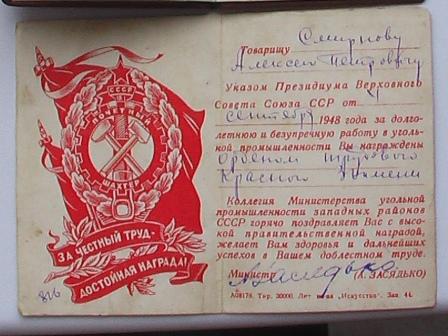 СССР
ПОЧЕТНЫЙ
ШАХТЕР
ЗА ЧЕСТНЫЙ ТРУД-
ДОСТОЙНАЯ НАГРАДА!
Товарищу Смирнову
Алексею Петровичу
Указом Президиума Верховного
Совета Союза ССР от
сентября 1948 года за долго-
летнюю и безупречную работу в уголь-
ной промышленности Вы награждены
Орденом Трудового
Красного Знамени
Коллегия Министерства угольной
промышленности западных районов
СССР горячо поздравляет Вас с высо-
кой правительственной наградой,
желает Вам здоровья и дальнейших
успехов в Вашем доблестном труде.
Министр (А. ЗАСЯДЬКО)
А08176. Тир. 30000. "Искусство". Зак. 44.